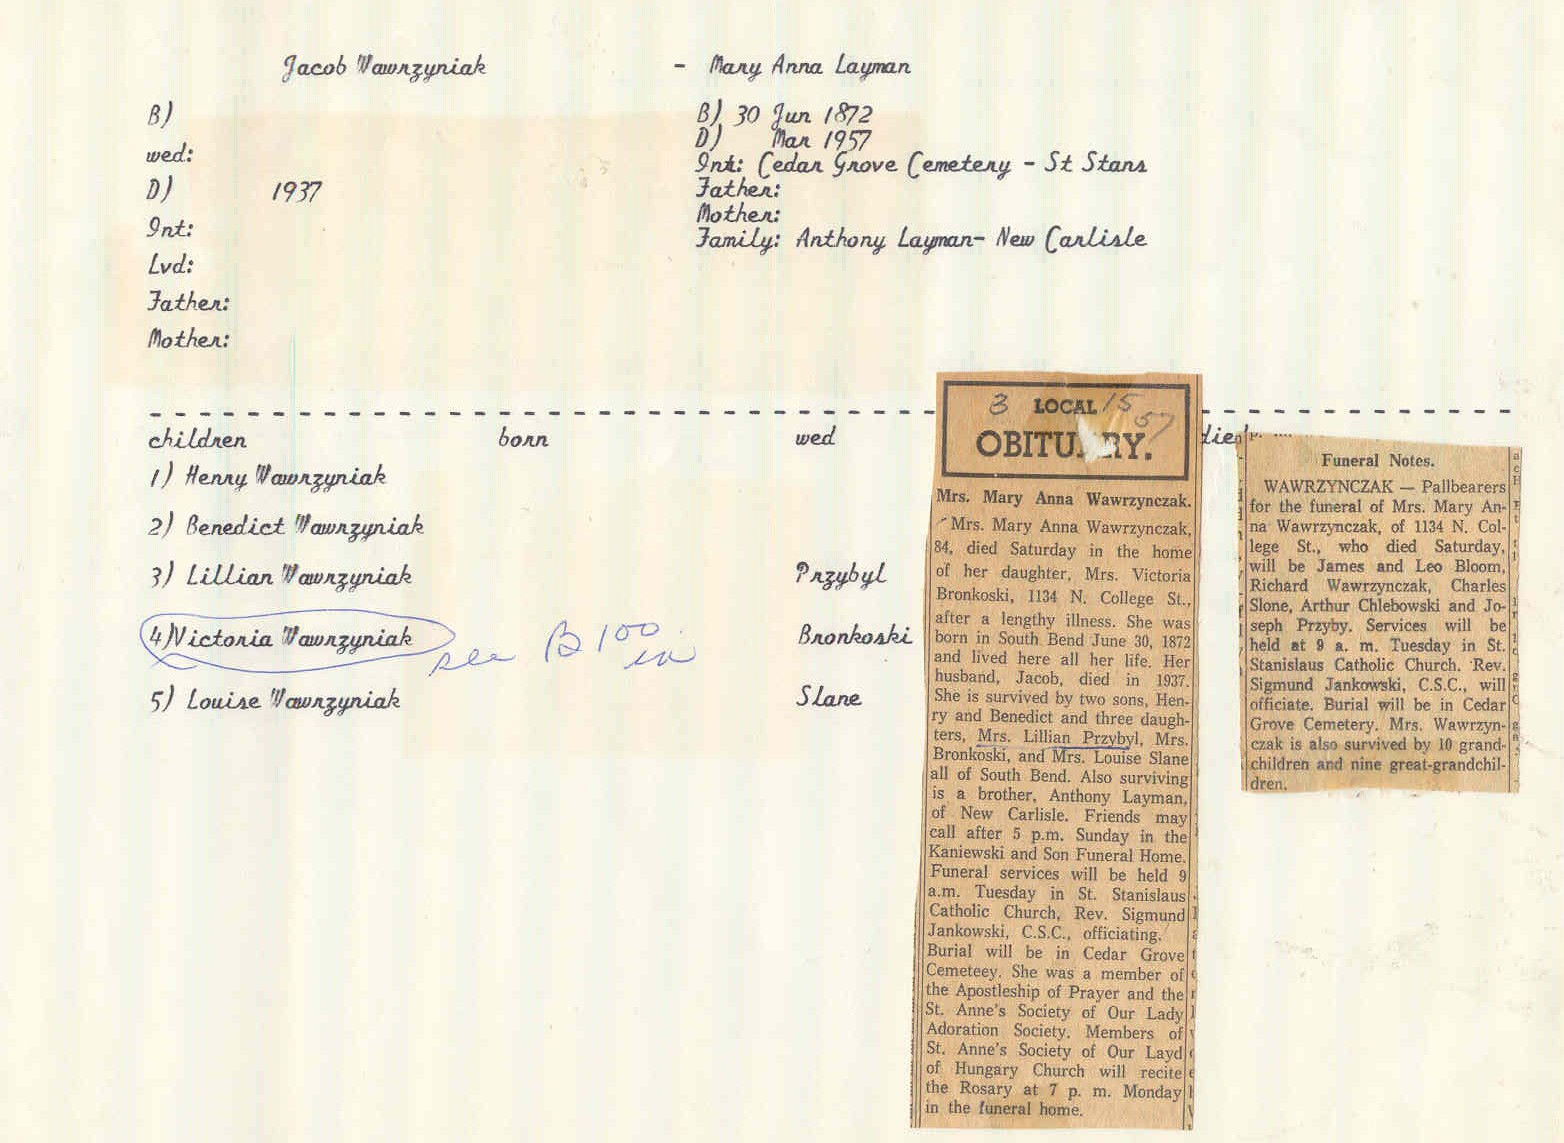 Jacob Wawrzyniak - Mary Anna Layman
B)
wed:
D) 1937
Int:
Lvd:
Father:
Mother:
B) 30 Jun 1872
D) Mar 1957
Int: Cedar Grove Cemetery - St Stans
Father:
Mother:
Family: Anthony Layman- New Carlisle
children born wed died
1) Henry Wawrzyniak
2) Benedict Wawrzyniak
3) Lillian Wawrzyniak Przybyl
4) Victoria Wawrzyniak see B 100 in Bronkoski
5) Louise Wawrzyniak Slane
3 LOCAL 15
57
OBITUARY.
Mrs. Mary Anna Wawrzynczak.
Mrs. Mary Anna Wawrzynczak,
84, died Saturday in the home
of her daughter, Mrs. Victoria
Bronkoski, 1134 N. College St.,
after a lengthy illness. She was
born in South Bend June 30, 1872
and lived here all her life. Her
husband, Jacob, died in 1937.
She is survived by two sons, Hen-
ry and Benedict and three daugh-
ters, Mrs. Lillian Przybyl, Mrs.
Bronkoski, and Mrs. Louise Slane
all of South Bend. Also surviving
is a brother, Anthony Layman,
of New Carlisle. Friends may
call after 5 p.m. Sunday in the
Kaniewski and Son Funeral Home.
Funeral services will be held 9
a.m. Tuesday in St. Stanislaus
Catholic Church, Rev. Sigmund
Jankowski, C.S.C., officiating.
Burial will be in Cedar Grove
Cemeteey. She was a member of
the Apostleship of Prayer and the
St. Anne's Society of Our Lady
Adoration Society. Members of
St. Anne's Society of Our Layd
of Hungary Church will recite
the Rosary at 7 p. m. Monday
in the funeral home.
Funeral Notes.
WAWRZYNCZAK — Pallbearers
for the funeral of Mrs. Mary An-
na Wawrzynczak, of 1134 N. Col-
lege St., who died Saturday,
will be James and Leo Bloom,
Richard Wawrzynczak, Charles
Slone, Arthur Chlebowski and Jo-
seph Przyby. Services will be
held at 9 a. m. Tuesday in St.
Stanislaus Catholic Church. Rev.
Sigmund Jankowski, C.S.C., will
officiate. Burial will be in Cedar
Grove Cemetery. Mrs. Wawrzyn-
czak is also survived by 10 grand-
children and nine great-grandchil-
dren.